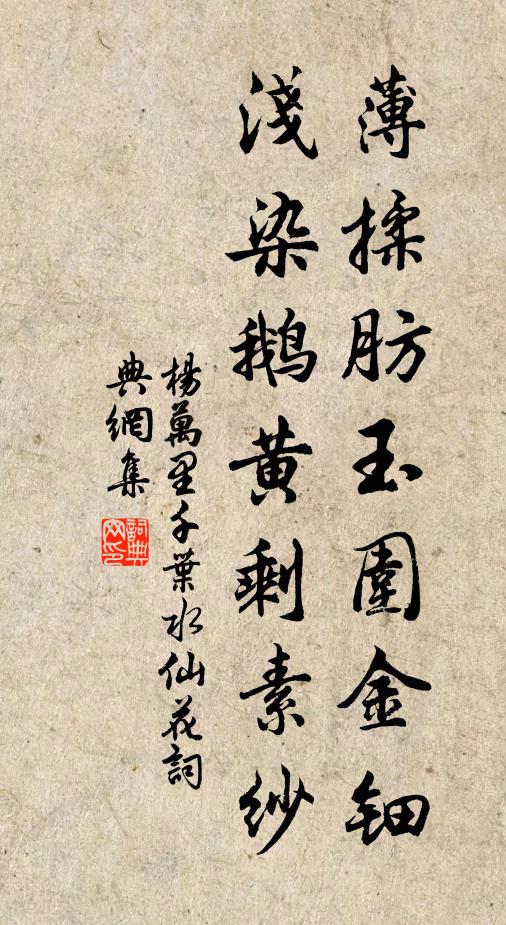 薄揉肪玉圍金鈿
淺染鵝黄剩素紗
楊萬里千葉水仙花詞
典網集
詞典網印